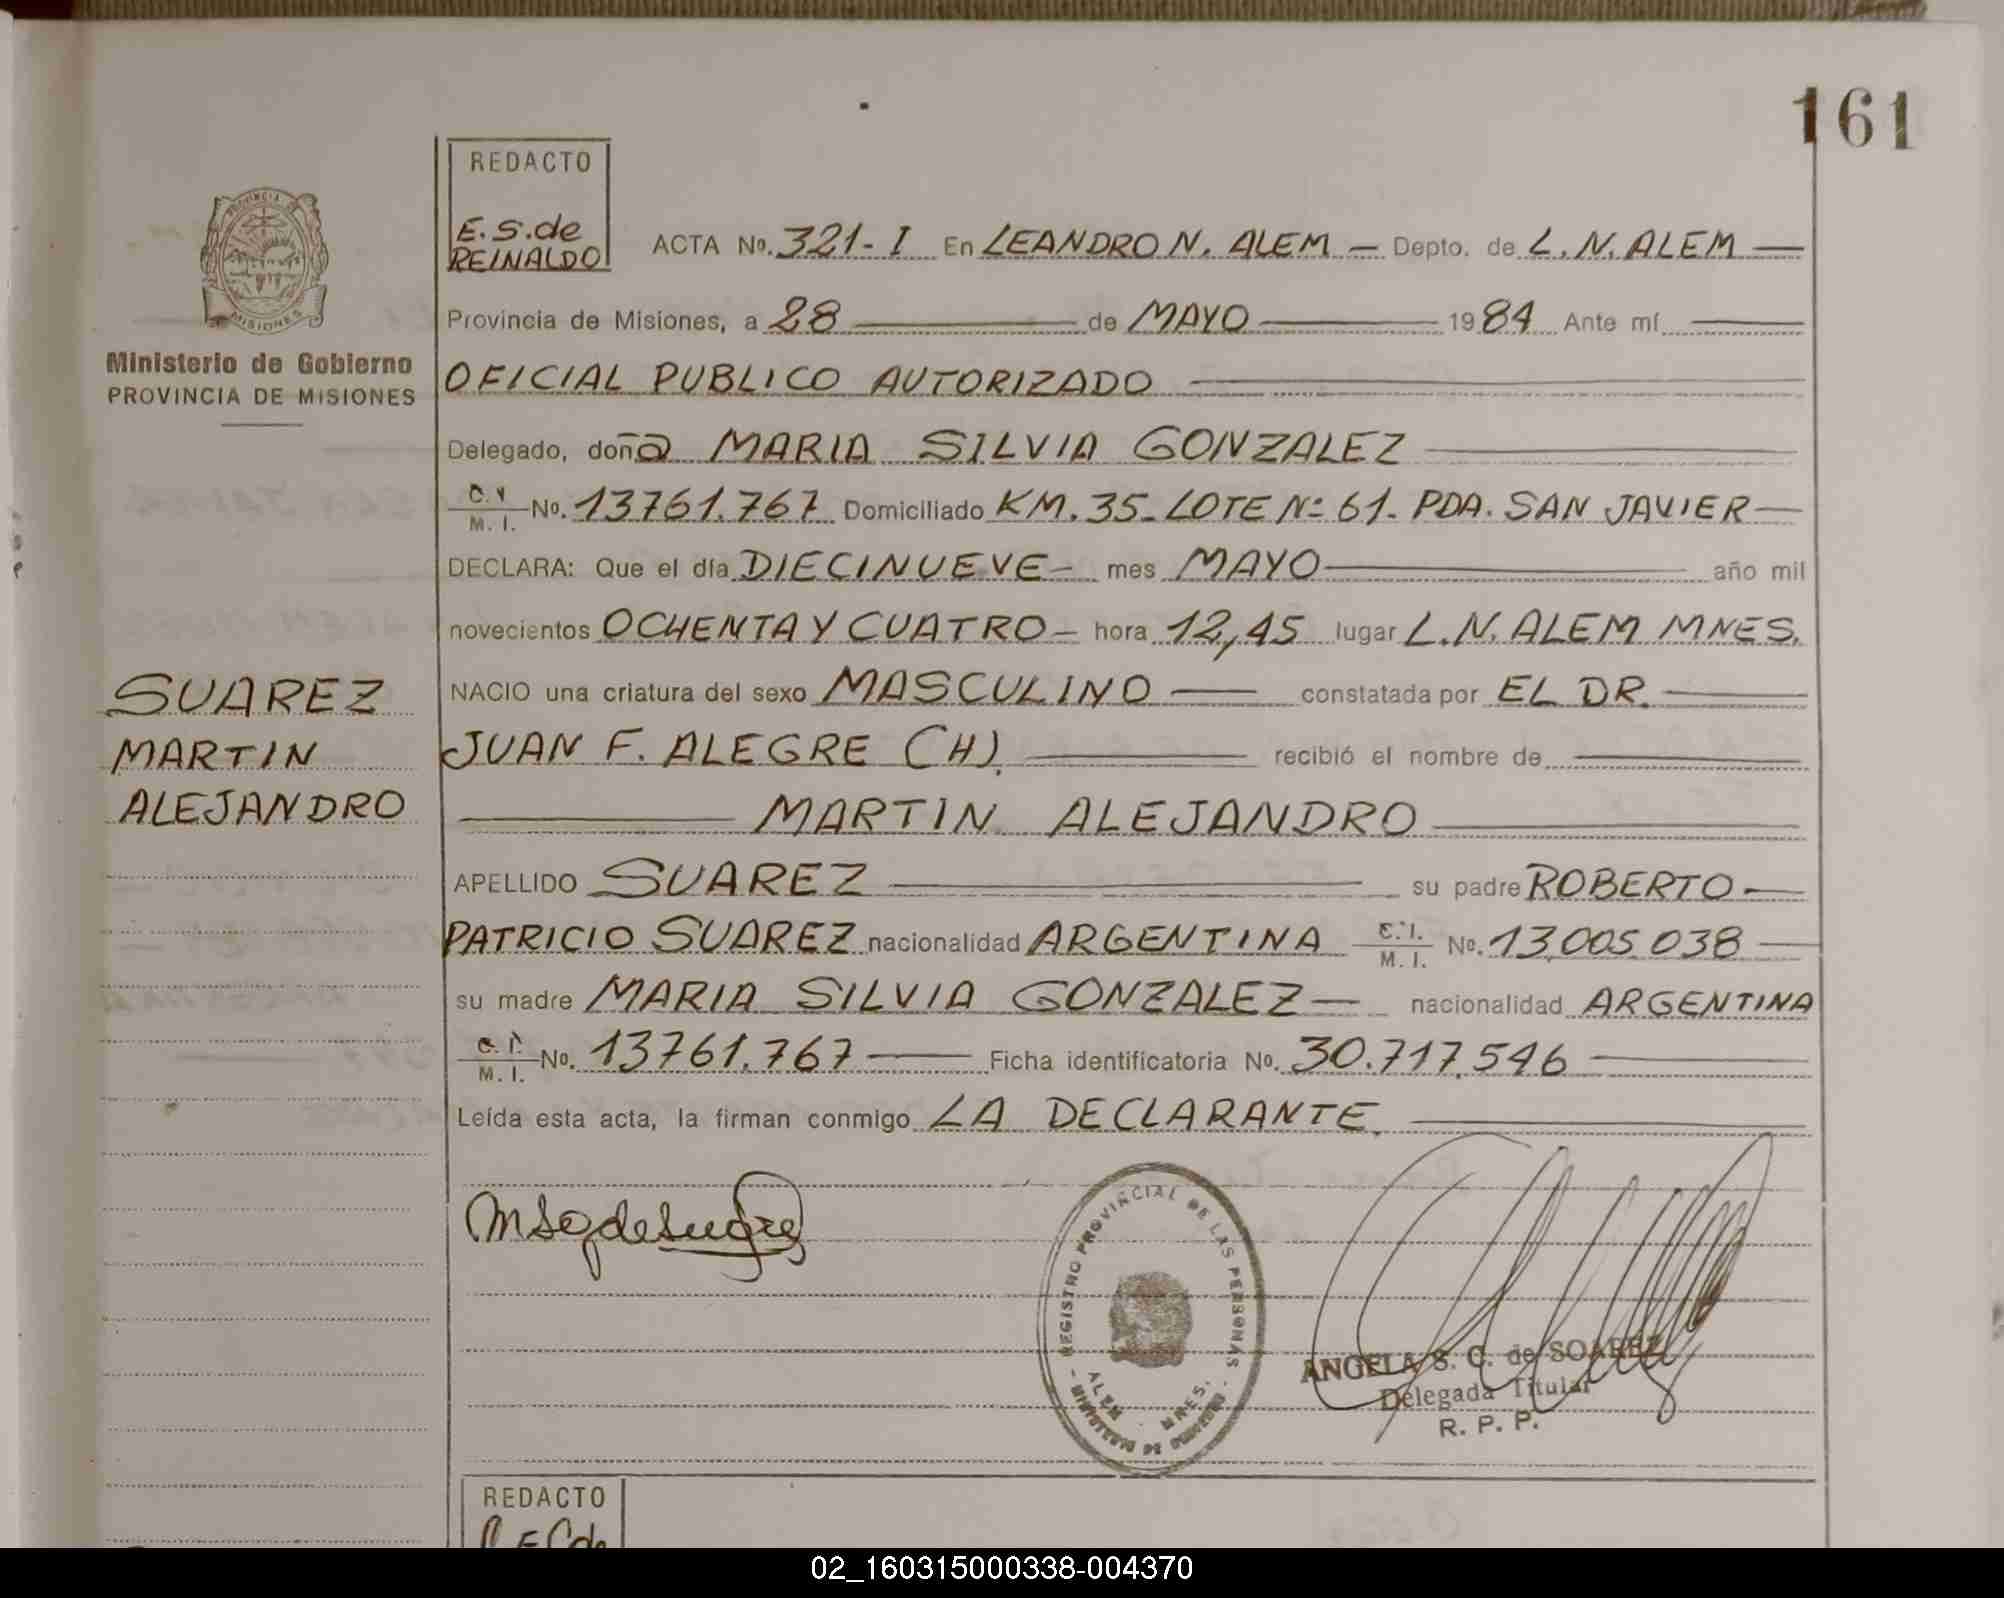 161
REDACTO
E. S. de
REINALDO
PROVINCIA DE
MISIONES
Ministerio de Gobierno
PROVINCIA DE MISIONES
ACTA No. 321-I En LEANDRO N. ALEM — Depto. de L. N. ALEM —
Provincia de Misiones, a 28 — de MAYO — 1984 Ante mí —
OFICIAL PUBLICO AUTORIZADO —
Delegado, doña MARIA SILVIA GONZALEZ —
M. I. No. 13761.767 Domiciliado KM. 35- LOTE Nº 61- PDA. SAN JAVIER —
DECLARA: Que el día DIECINUEVE — mes MAYO — año mil
novecientos OCHENTA Y CUATRO — hora 12,45 lugar L.N. ALEM MNES.
SUAREZ
MARTIN
ALEJANDRO
NACIO una criatura del sexo MASCULINO — constatada por EL DR. —
JUAN F. ALEGRE (H). — recibió el nombre de —
— MARTIN ALEJANDRO —
APELLIDO SUAREZ — su padre ROBERTO —
PATRICIO SUAREZ nacionalidad ARGENTINA C. I. M. I. No. 13.005.038 —
su madre MARIA SILVIA GONZALEZ — nacionalidad ARGENTINA
C. I. M. I. No. 13761.767 — Ficha identificatoria No. 30.717.546 —
Leída esta acta, la firman conmigo LA DECLARANTE. —
REGISTRO PROVINCIAL DE LAS PERSONAS
ALEM - MNES.
MINISTERIO DE GOBIERNO
ANGELA S. C. de SOAREZ
Delegada Titular
R. P. P.
REDACTO
02_160315000338-004370